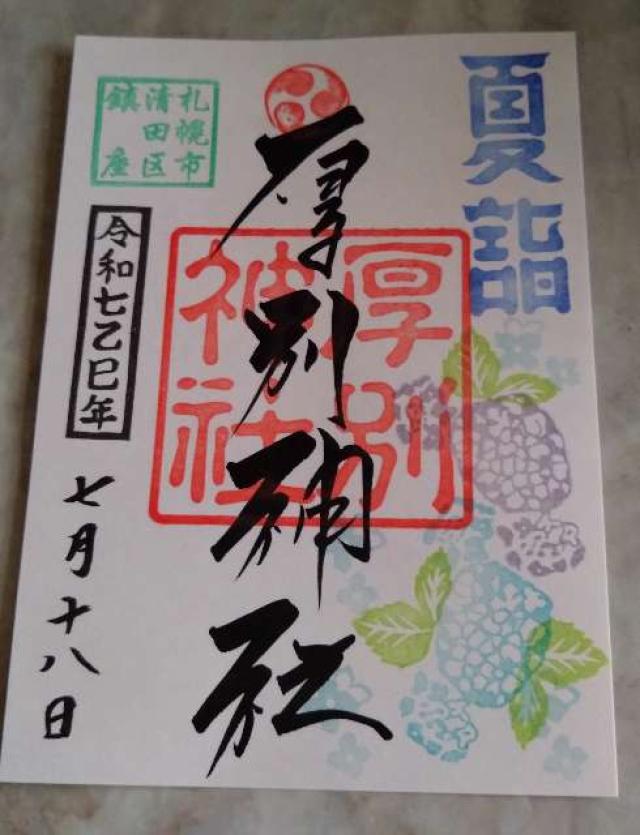 夏詣
厚別神社
厚別
神社
札幌市
清田区
鎮座
令和七乙巳年
七月十八日